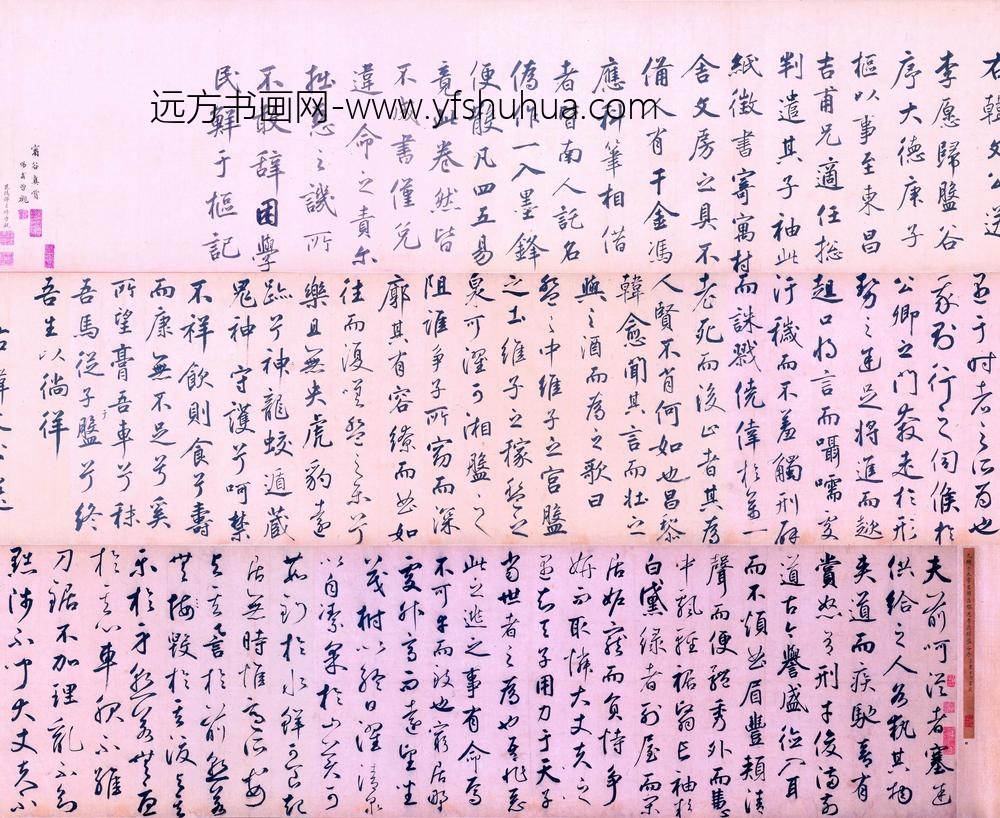 右韓文公送
李愿歸盤谷
序大德庚子
樞以事至東昌
吉甫兄適任揔
判遣其子袖此
紙徵書寄寓村
舍文房之具不
備人有千金馮
應科筆相借
者皆南人託名
偽作一入墨鋒
便散凡四五易
竟此卷然皆
不書僅免
違命之責尔
拙惡之譏所
不敢辭困學
民鮮于樞記
远方书画网-www.yfshuhua.com
遇于时者之所为也
我則行之伺候於
公卿之門奔走於形
勢之途足将進而趑
趄口将言而囁嚅處
汙穢而不羞觸刑辟
而誅戮僥倖於萬一
老死而後止者其為
人賢不肖何如也昌黎
韓愈聞其言而壯之
與之酒而為之歌曰
盤之中維子之宫盤
之土維子之稼盤之
泉可濯可湘盤之
阻誰争子所窈而深
廓其有容繚而曲如
往而復嗟盤之樂兮
樂且無央虎豹遠
跡兮神龍蛟遁藏
鬼神守護兮呵禁
不祥飲則食兮壽
而康無不足兮奚
所望膏吾車兮秣
吾馬從子于盤兮終
吾生以徜徉
夫前呵從者塞途
供給之人各執其物
夾道而疾馳喜有
賞怒有刑才俊滿前
道古今譽盛德入耳
而不煩曲眉豐頰清
聲而便體秀外而慧
中飄輕裾翳長袖粉
白黛綠者列屋而閑
居妬寵而負恃争
妍而取憐大丈夫之
遇知天子用力于天子
當世者之為也吾非惡
此之逃之事有命焉
不可幸而致也窮居野
處升高而遠望坐
茂樹以終日濯清泉
以自潔采於山美可
茹釣於水鮮可食起
居無時惟適所安
與其譽於前孰若
無毀於其後與其
樂於身孰若無憂
於其心車服不維
刀鋸不加理亂不知
黜陟不聞大丈夫不